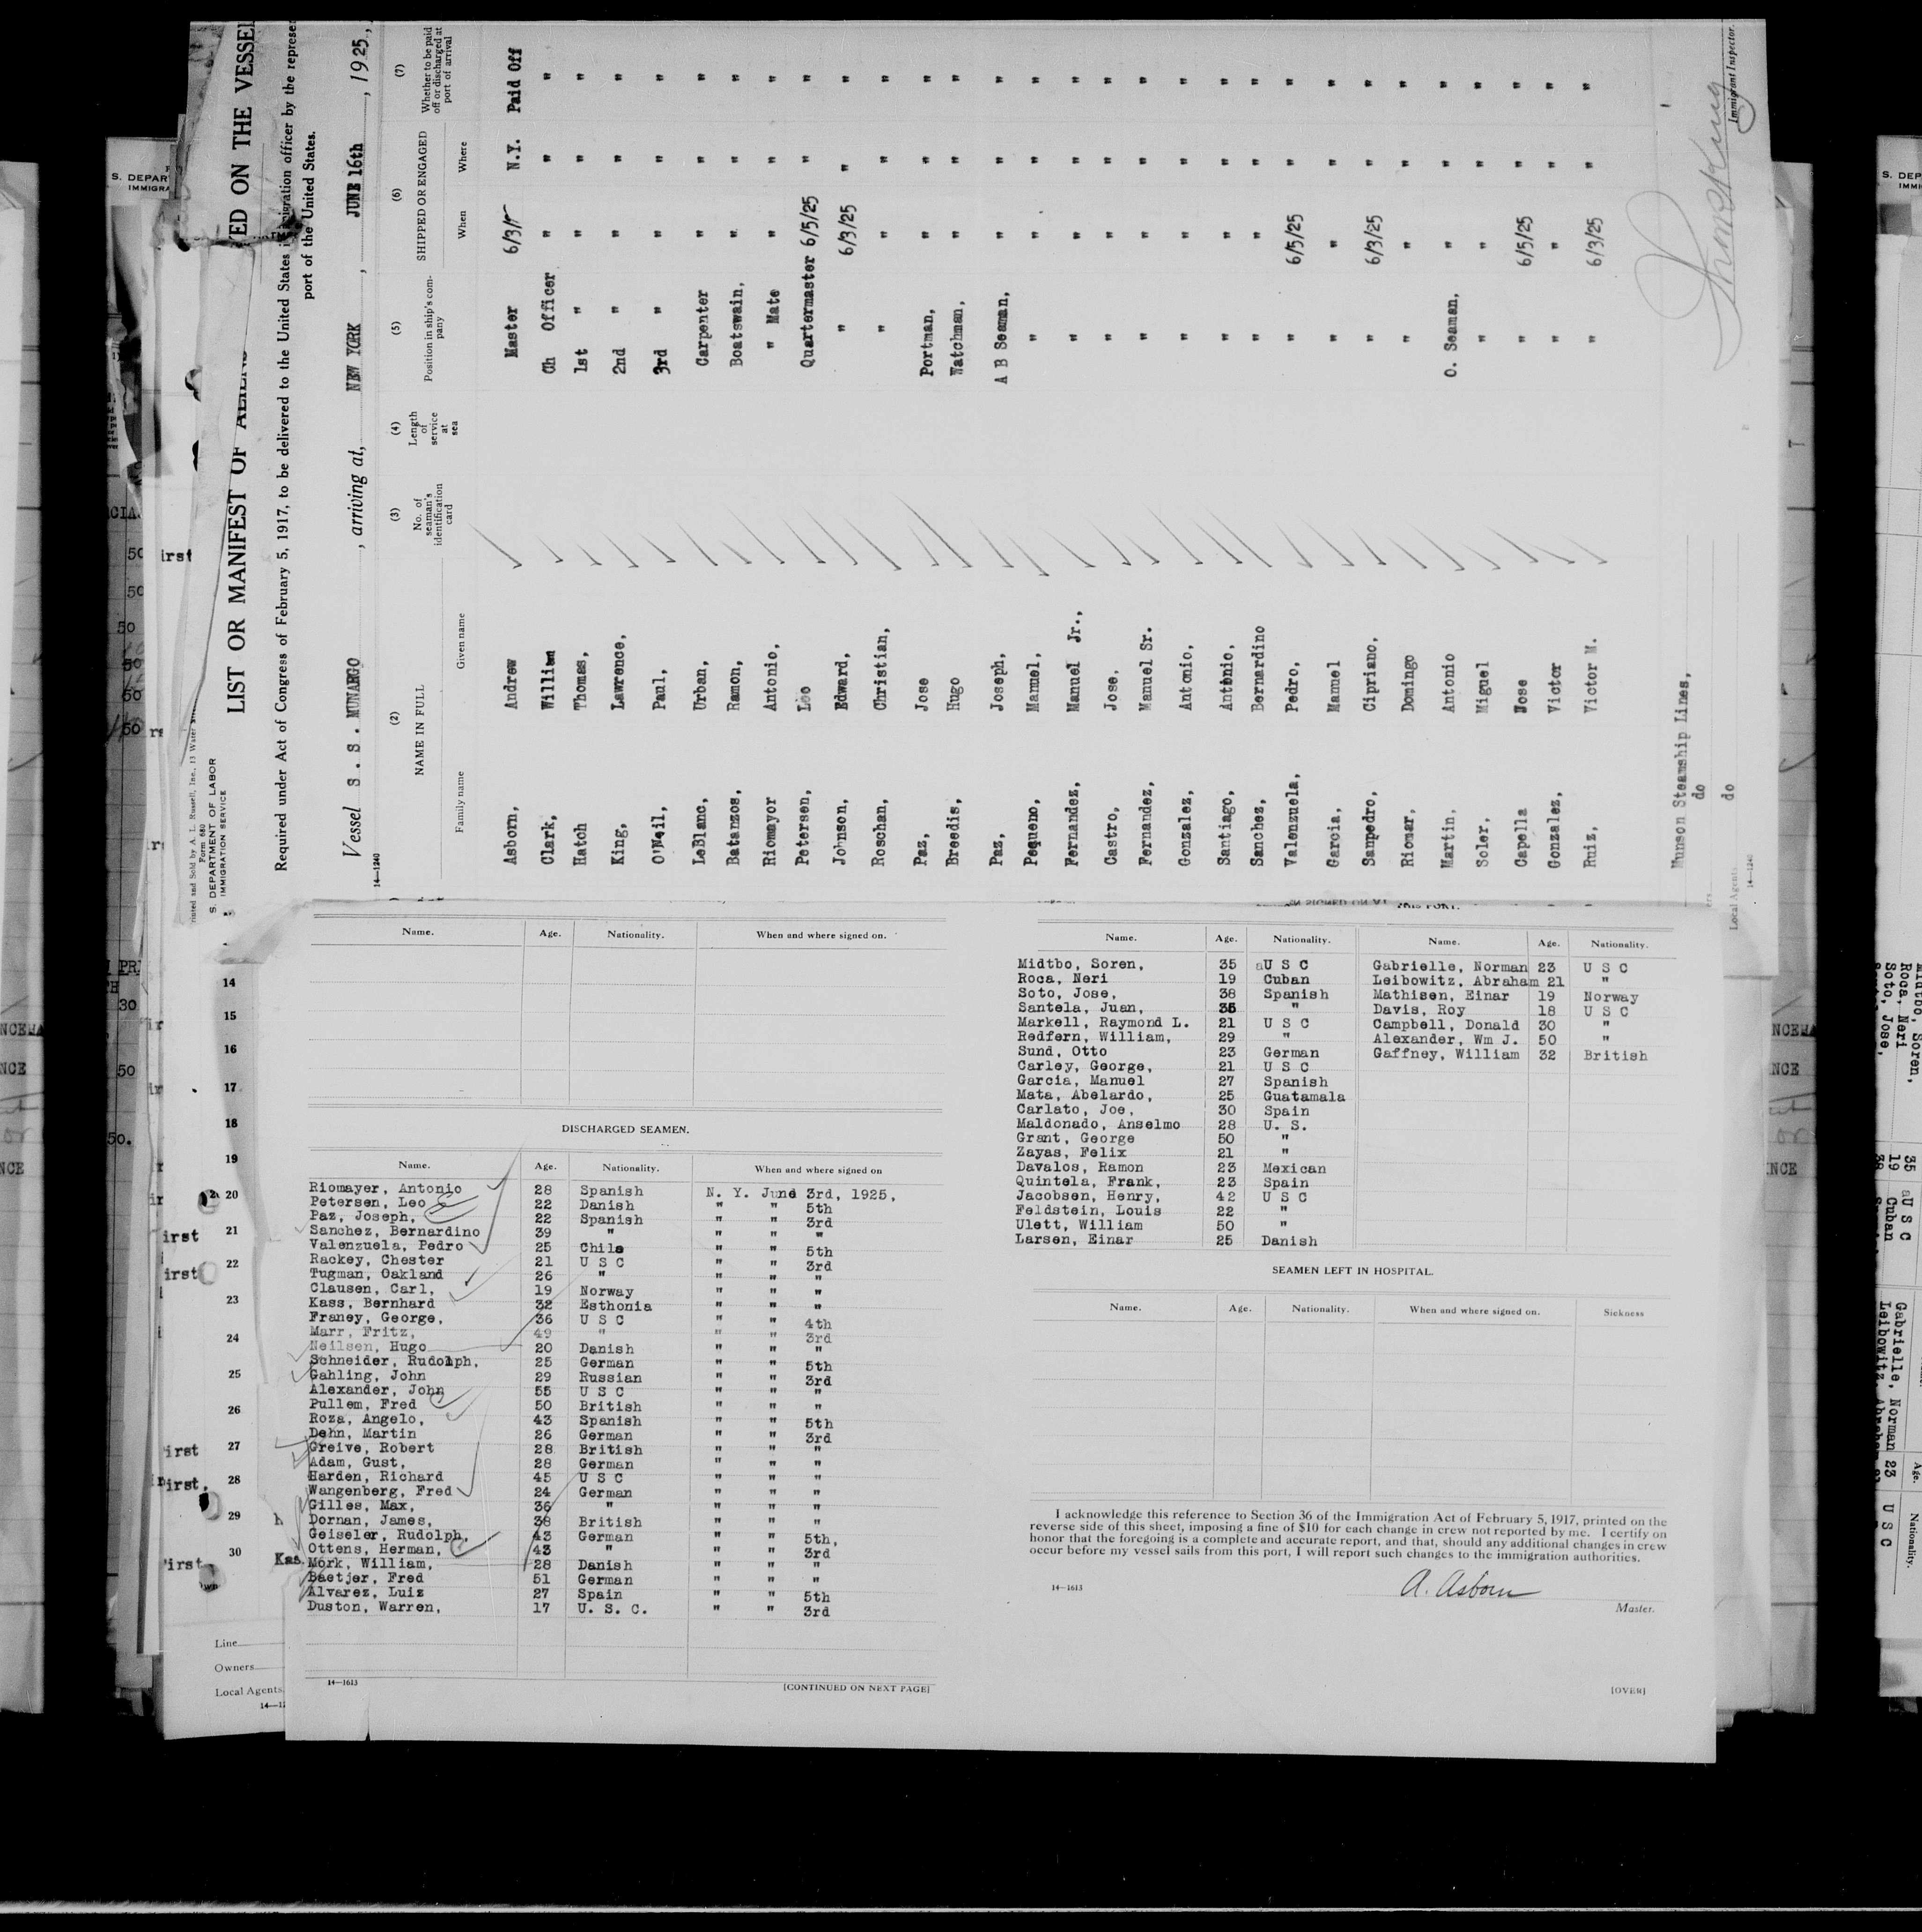 LIST OR MANIFEST OF ALIENS
ED ON THE VESSEL
Required under Act of Congress of February 5, 1917, to be delivered to the United States immigration officer by the represe
port of the United States.
Form 680
S. DEPARTMENT OF LABOR
IMMIGRATION SERVICE
Vessel S. S. MUNARGO, arriving at, NEW YORK, JUNE 16th, 1925,
14—1240
(2) (3) (4) (5) (6) (7)
NAME IN FULL
Family name Given name
No. of seaman's identification card
Length of service at sea
Position in ship's company
SHIPPED OR ENGAGED
When Where
Whether to be paid off or discharged at port of arrival
Asborn, Andrew Master 6/3/ N.Y. Paid Off
Clark, William Ch Officer " " "
Hatch Thomas, 1st " " " "
King, Lawrence, 2nd " " " "
O'Neil, Paul, 3rd " " " "
LeBlanc, Urban, Carpenter " " "
Batanzos, Ramon, Boatswain, " " "
Riomayor Antonio, " Mate " " "
Petersen, Leo Quartermaster 6/5/25 " "
Johnson, Edward, " 6/3/25 " "
Roschan, Christian, " " " "
Paz, Jose Portman, " " "
Bredis, Hugo Watchman, " " "
Paz, Joseph, A B Seaman, " " "
Pequeno, Manuel, " " " "
Fernandez, Manuel Jr., " " " "
Castro, Jose, " " " "
Fernandez, Manuel Sr. " " " "
Gonzalez, Antonio, " " " "
Santiago, Antonio, " " " "
Sanchez, Bernardino " " " "
Valenzuela, Pedro, " 6/5/25 " "
Garcia, Manuel " " " "
Sampedro, Cipriano, " 6/3/25 " "
Riomar, Domingo " " " "
Martin, Antonio O. Seaman, " " "
Soler, Miguel " " " "
Capella Jose " 6/5/25 " "
Gonzalez, Victor " " " "
Ruiz, Victor M. " 6/3/25 " "
Munson Steamship Lines,
do
do
Local Agents
14—1240
Immigrant Inspector.
Name. Age. Nationality. When and where signed on.
14
15
16
17
18
19
20
21
22
23
24
25
26
27
28
29
30
DISCHARGED SEAMEN.
Name. Age. Nationality. When and where signed on
Riomayer, Antonio 28 Spanish N. Y. June 3rd, 1925,
Petersen, Leo 22 Danish " " 5th
Paz, Joseph, 22 Spanish " " 3rd
Sanchez, Bernardino 39 " " " "
Valenzuela, Pedro 25 Chile " " 5th
Rackey, Chester 21 U S C " " 3rd
Tugman, Oakland 26 " " " "
Clausen, Carl, 19 Norway " " "
Kass, Bernhard 32 Esthonia " " "
Franey, George, 36 U S C " " 4th
Marr, Fritz, 49 " " " 3rd
Neilsen, Hugo 20 Danish " " "
Schneider, Rudolph, 25 German " " 5th
Gahling, John 29 Russian " " 3rd
Alexander, John 55 U S C " " "
Pullem, Fred 50 British " " "
Roza, Angelo, 43 Spanish " " 5th
Dehn, Martin 26 German " " 3rd
Greive, Robert 28 British " " "
Adam, Gust, 28 German " " "
Harden, Richard 45 U S C " " "
Wangenberg, Fred 24 German " " "
Gilles, Max, 36 " " " "
Dornan, James, 38 British " " "
Geiseler, Rudolph, 43 German " " 5th,
Ottens, Herman, 43 " " " 3rd
Mork, William, 28 Danish " " "
Baetjer, Fred 51 German " " "
Alvarez, Luiz 27 Spain " " 5th
Duston, Warren, 17 U. S. C. " " 3rd
14—1613
[CONTINUED ON NEXT PAGE]
Line
Owners
Local Agents
Name. Age. Nationality. Name. Age. Nationality.
Midtbo, Soren, 35 U S C Gabrielle, Norman 23 U S C
Roca, Neri 19 Cuban Leibowitz, Abraham 21 "
Soto, Jose, 38 Spanish Mathisen, Einar 19 Norway
Santela, Juan, 35 " Davis, Roy 18 U S C
Markell, Raymond L. 21 U S C Campbell, Donald 30 "
Redfern, William, 29 " Alexander, Wm J. 50 "
Sund, Otto 23 German Gaffney, William 32 British
Carley, George, 21 U S C
Garcia, Manuel 27 Spanish
Mata, Abelardo, 25 Guatamala
Carlato, Joe, 30 Spain
Maldonado, Anselmo 28 U. S.
Grant, George 50 "
Zayas, Felix 21 "
Davalos, Ramon 23 Mexican
Quintela, Frank, 23 Spain
Jacobsen, Henry, 42 U S C
Feldstein, Louis 22 "
Ulett, William 50 "
Larsen, Einar 25 Danish
SEAMEN LEFT IN HOSPITAL.
Name. Age. Nationality. When and where signed on. Sickness
I acknowledge this reference to Section 36 of the Immigration Act of February 5, 1917, printed on the
reverse side of this sheet, imposing a fine of $10 for each change in crew not reported by me. I certify on
honor that the foregoing is a complete and accurate report, and that, should any additional changes in crew
occur before my vessel sails from this port, I will report such changes to the immigration authorities.
14—1613
A. Asborn
Master.
[OVER]